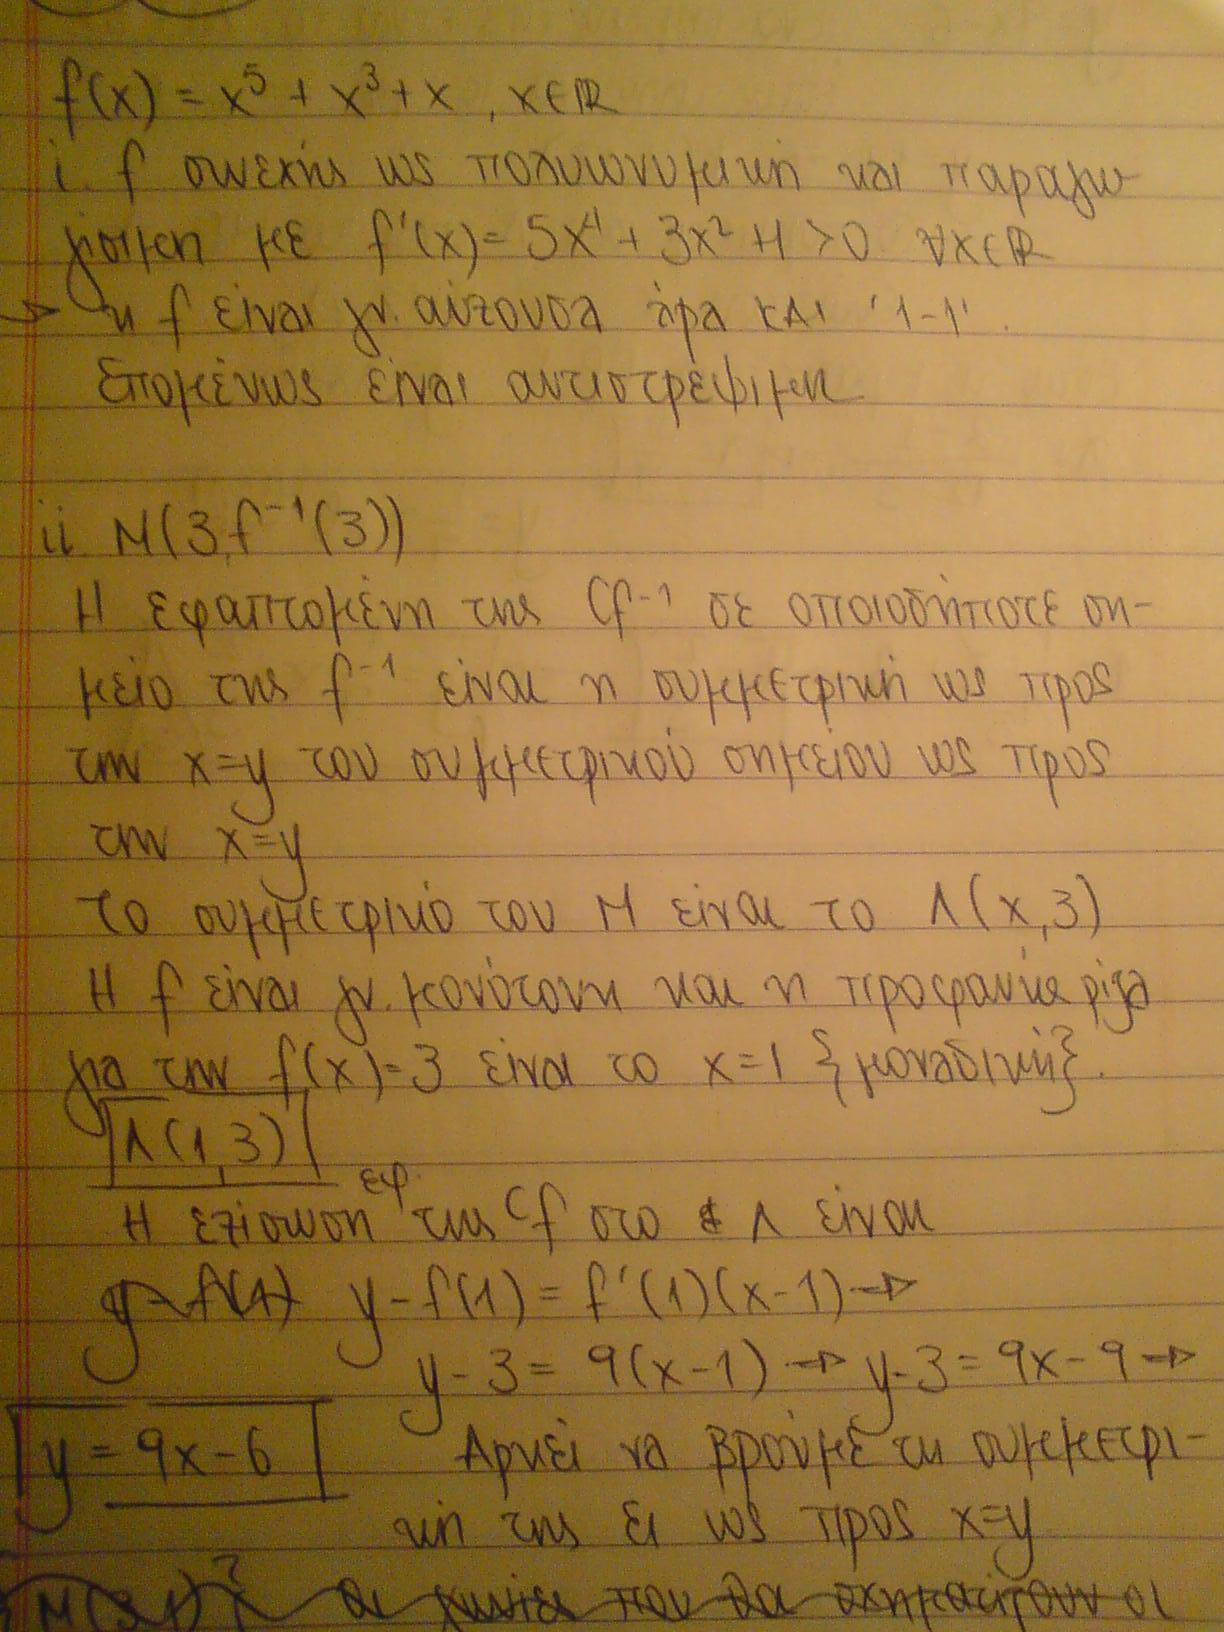 f(x) = x⁵ + x³ + x , x∈ℝ
i. f συνεχής ως πολυωνυμική και παραγω-
γίσιμη με f'(x) = 5x⁴ + 3x² + 1 > 0 ∀x∈ℝ
→ η f είναι γν. αύξουσα άρα ΚΑΙ '1-1'.
Επομένως είναι αντιστρέψιμη
ii. M(3, f⁻¹(3))
Η εφαπτομένη της Cf⁻¹ σε οποιοδήποτε ση-
μείο της f⁻¹ είναι η συμμετρική ως προς
την x=y του συμμετρικού σημείου ως προς
την x=y
το συμμετρικό του Μ είναι το Λ(x,3)
Η f είναι γν. μονότονη και η προφανής ρίζα
για την f(x)=3 είναι το x=1 {μοναδική}.
Λ(1,3)
Η εξίσωση εφ. της Cf στο Λ είναι
y-f(1) y-f(1) = f'(1)(x-1) →
y-3 = 9(x-1) → y-3 = 9x-9 →
y = 9x-6 Αρκεί να βρούμε τη συμμετρι-
κή της ει ως προς x=y
M(3,1) οι γωνίες που θα σχηματίζουν οι